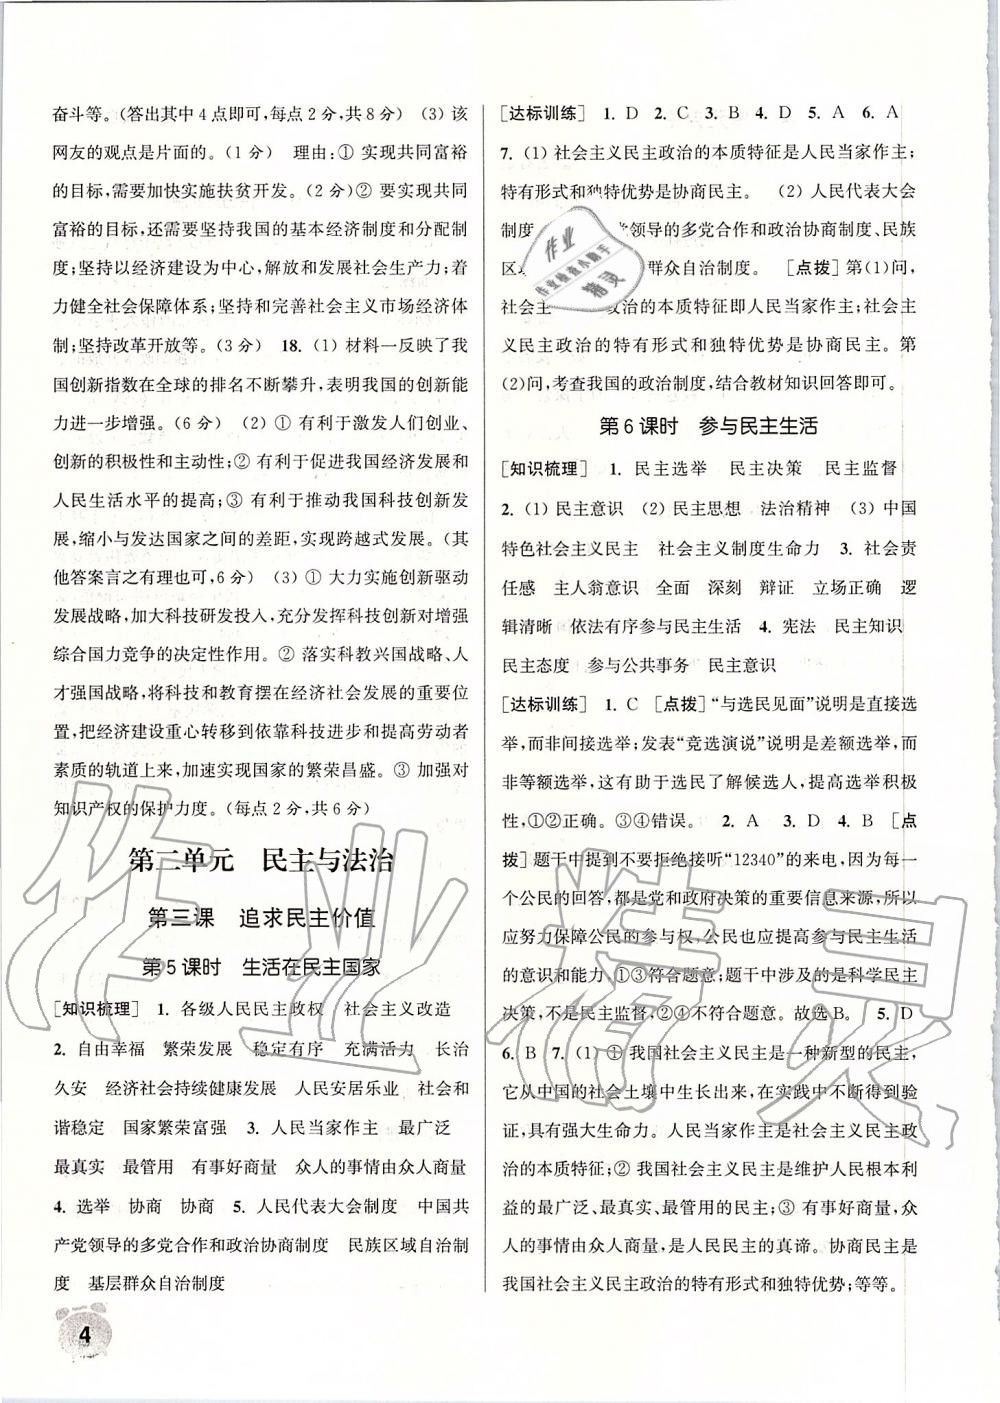 奋斗等。(答出其中4点即可,每点2分,共8分) (3) 该
网友的观点是片面的。(1 分) 理由:① 实现共同富裕
的目标,需要加快实施扶贫开发。(2分)② 要实现共同
富裕的目标,还需要坚持我国的基本经济制度和分配制
度;坚持以经济建设为中心,解放和发展社会生产力;着
力健全社会保障体系;坚持和完善社会主义市场经济体
制;坚持改革开放等。(3 分) 18. (1) 材料一反映了我
国创新指数在全球的排名不断攀升,表明我国的创新能
力进一步增强。(6分) (2) ① 有利于激发人们创业、
创新的积极性和主动性;② 有利于促进我国经济发展和
人民生活水平的提高;③ 有利于推动我国科技创新发
展,缩小与发达国家之间的差距,实现跨越式发展。(其
他答案言之有理也可,6分) (3) ① 大力实施创新驱动
发展战略,加大科技研发投入,充分发挥科技创新对增强
综合国力竞争的决定性作用。② 落实科教兴国战略、人
才强国战略,将科技和教育摆在经济社会发展的重要位
置,把经济建设重心转移到依靠科技进步和提高劳动者
素质的轨道上来,加速实现国家的繁荣昌盛。③ 加强对
知识产权的保护力度。(每点2分,共6分)
第二单元 民主与法治
第三课 追求民主价值
第5课时 生活在民主国家
[知识梳理] 1. 各级人民民主政权 社会主义改造
2. 自由幸福 繁荣发展 稳定有序 充满活力 长治
久安 经济社会持续健康发展 人民安居乐业 社会和
谐稳定 国家繁荣富强 3. 人民当家作主 最广泛
最真实 最管用 有事好商量 众人的事情由众人商量
4. 选举 协商 协商 5. 人民代表大会制度 中国共
产党领导的多党合作和政治协商制度 民族区域自治制
度 基层群众自治制度
4
[达标训练] 1. D 2. C 3. B 4. D 5. A 6. A
7. (1) 社会主义民主政治的本质特征是人民当家作主;
特有形式和独特优势是协商民主。 (2) 人民代表大会
制度 党领导的多党合作和政治协商制度、民族
区 群众自治制度。 [点拨] 第(1)问,
社会主 政治的本质特征即人民当家作主;社会主
义民主政治的特有形式和独特优势是协商民主。第
(2)问,考查我国的政治制度,结合教材知识回答即可。
第6课时 参与民主生活
[知识梳理] 1. 民主选举 民主决策 民主监督
2. (1) 民主意识 (2) 民主思想 法治精神 (3) 中国
特色社会主义民主 社会主义制度生命力 3. 社会责
任感 主人翁意识 全面 深刻 辩证 立场正确 逻
辑清晰 依法有序参与民主生活 4. 宪法 民主知识
民主态度 参与公共事务 民主意识
[达标训练] 1. C [点拨] “与选民见面”说明是直接选
举,而非间接选举;发表“竞选演说”说明是差额选举,而
非等额选举,这有助于选民了解候选人,提高选举积极
性,①②正确。③④错误。 2. A 3. D 4. B [点
拨] 题干中提到不要拒绝接听“12340”的来电,因为每一
个公民的回答,都是党和政府决策的重要信息来源,所以
应努力保障公民的参与权,公民也应提高参与民主生活
的意识和能力,①③符合题意;题干中涉及的是科学民主
决策,不是民主监督,②④不符合题意。故选B。 5. D
6. B 7. (1) ① 我国社会主义民主是一种新型的民主,
它从中国的社会土壤中生长出来,在实践中不断得到验
证,具有强大生命力。人民当家作主是社会主义民主政
治的本质特征;② 我国社会主义民主是维护人民根本利
益的最广泛、最真实、最管用的民主;③ 有事好商量,众
人的事情由众人商量,是人民民主的真谛。协商民主是
我国社会主义民主政治的特有形式和独特优势;等等。
作业
作业检查小助手
精灵
作业精灵